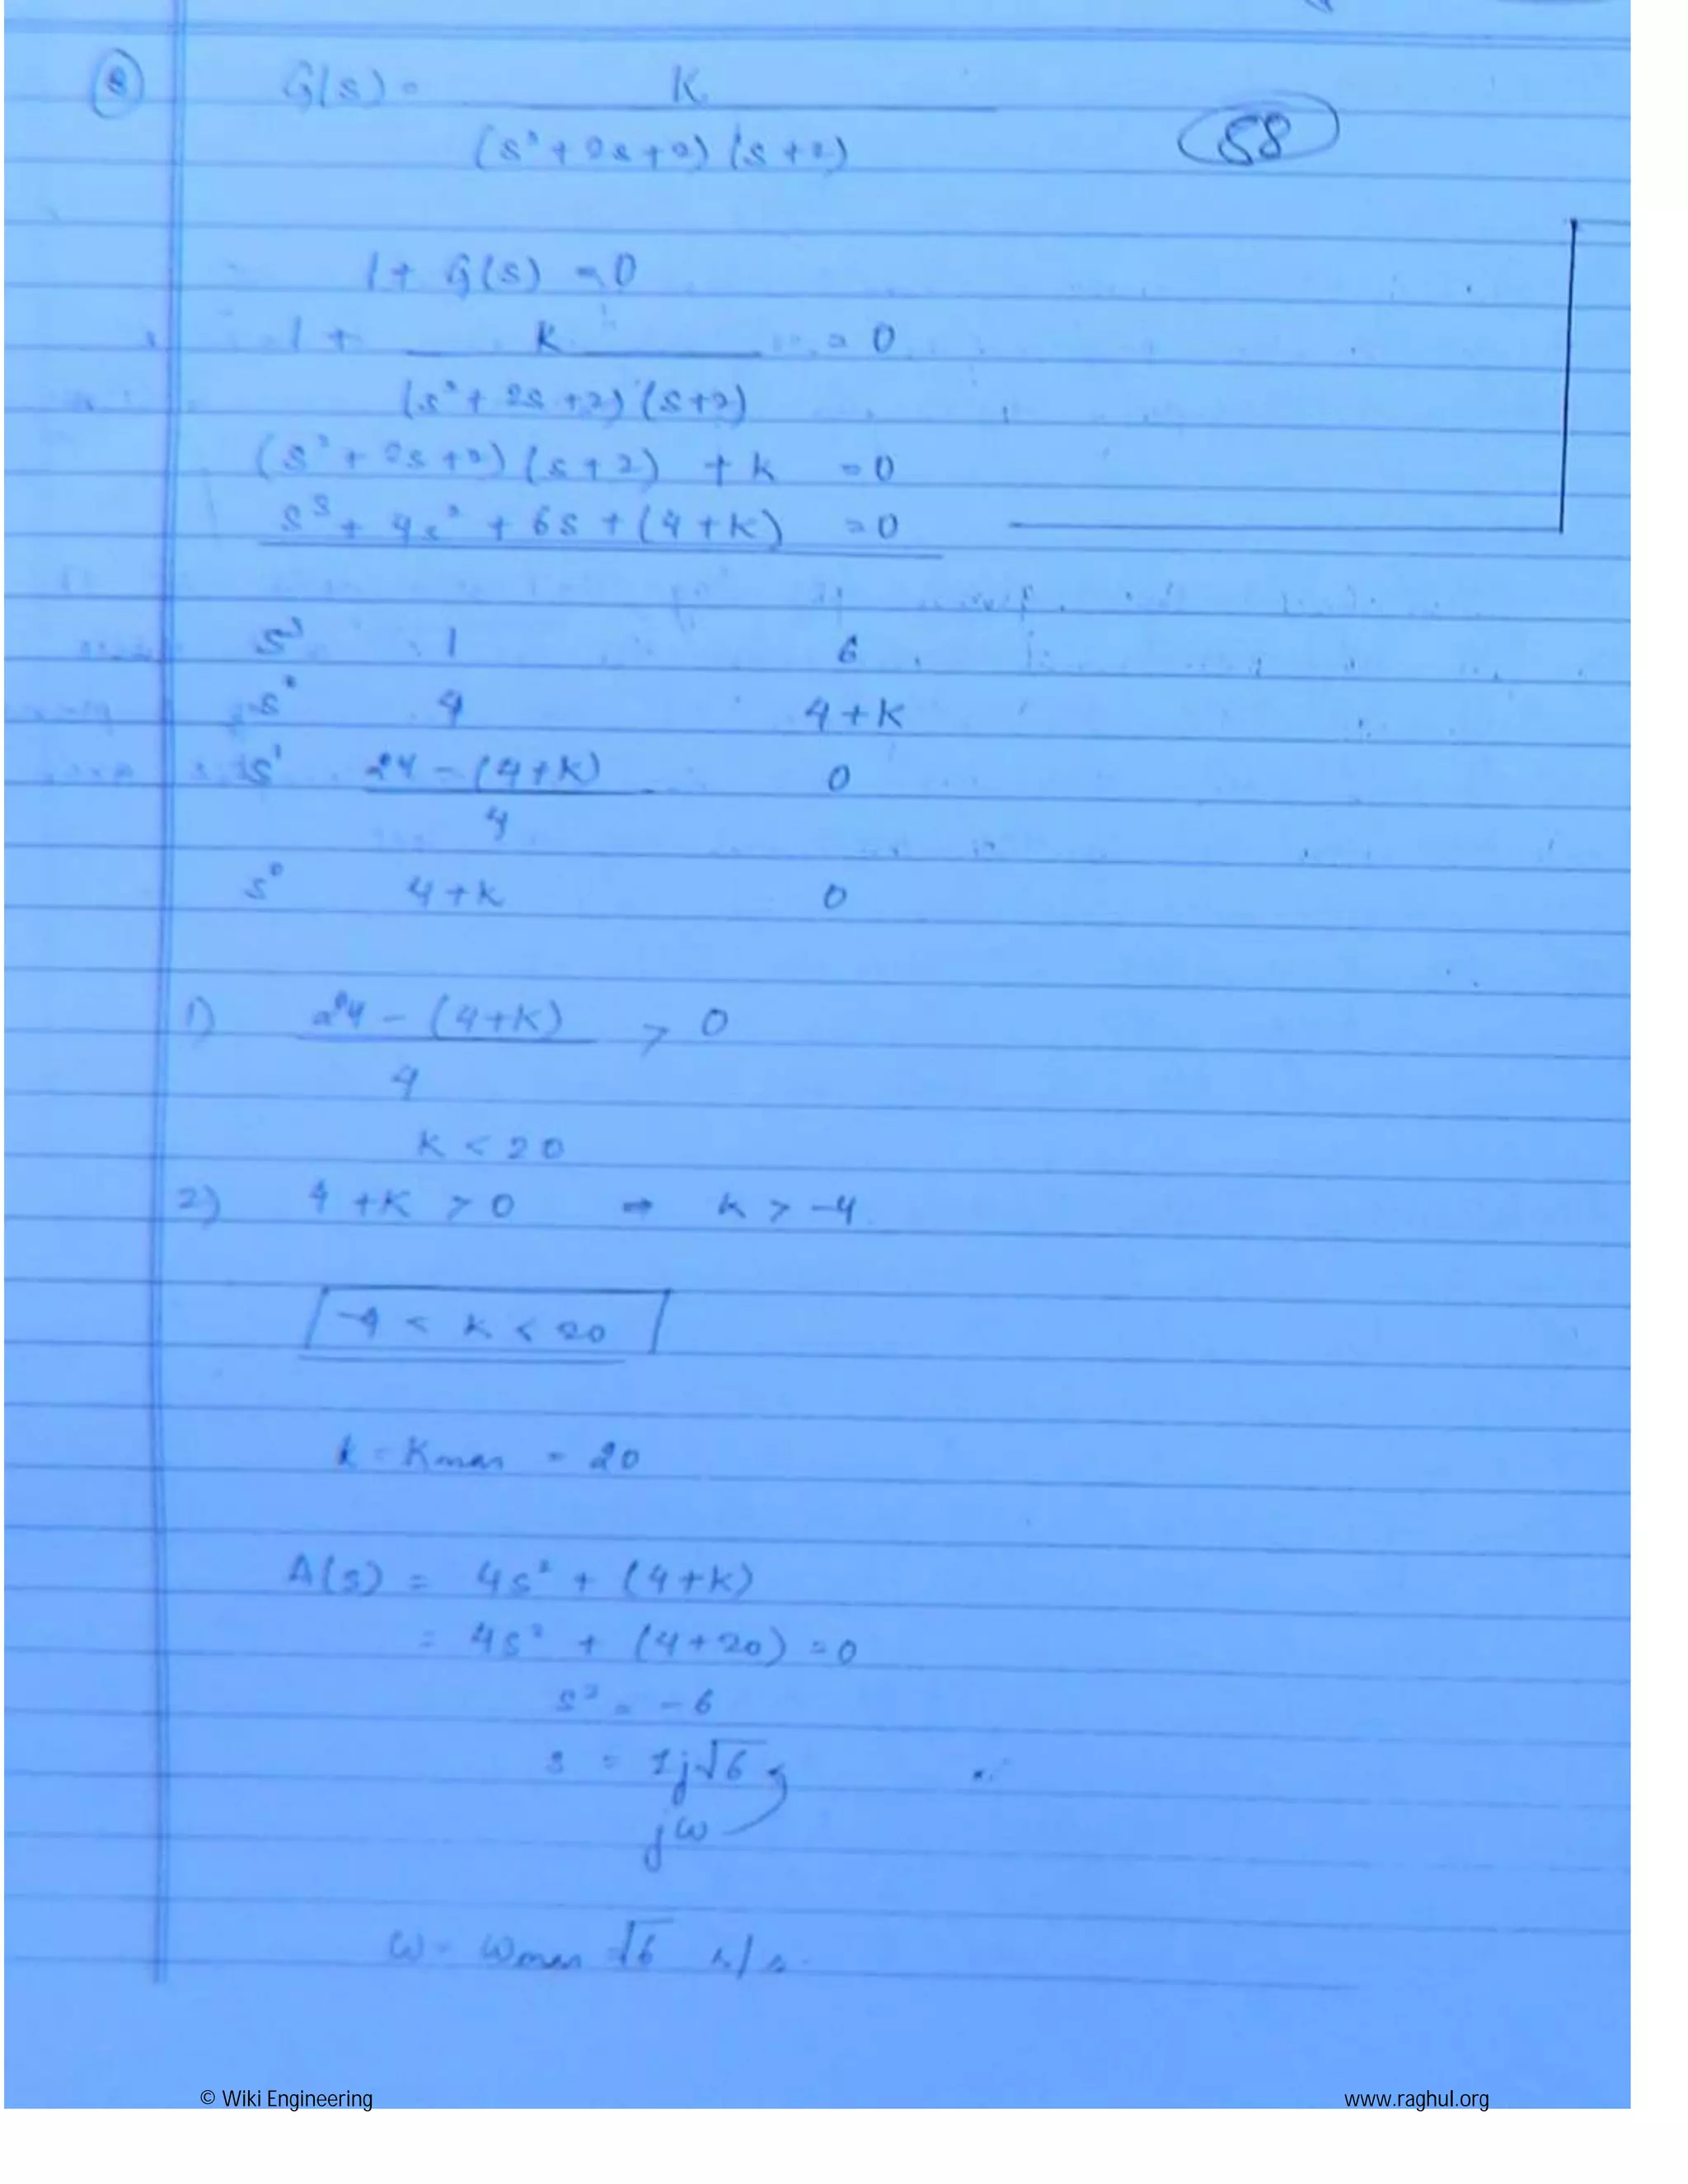 8 G(s) = K
(s² + 2s + 2) (s + 2)
58
1 + G(s) = 0
1 + K = 0
(s² + 2s + 2) (s + 2)
(s² + 2s + 2) (s + 2) + K = 0
s³ + 4s² + 6s + (4 + K) = 0
s³ 1 6
s² 4 4 + K
s¹ 24 - (4 + K) 0
4
s⁰ 4 + K 0
1) 24 - (4 + K) > 0
4
K < 20
2) 4 + K > 0 ⇒ K > -4
-4 < K < 20
K = Kmar = 20
A(s) = 4s² + (4 + K)
= 4s² + (4 + 20) = 0
s² = -6
s = ±j√6
jω
ω = ωmar = √6 r/s.
© Wiki Engineering www.raghul.org